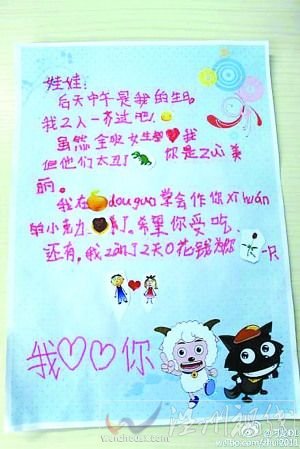 娃娃:
后天中午是我的生日,
我2人一齐过吧!
虽然全班女生都❤我
但他们太丑了 你是Zui美
丽。
我在 douguo学会作你xǐhuán
的小 力 了。希望你爱吃
还有,我 了2天0花钱 你 一只
我♡♡你
weibo.com/zhui2011